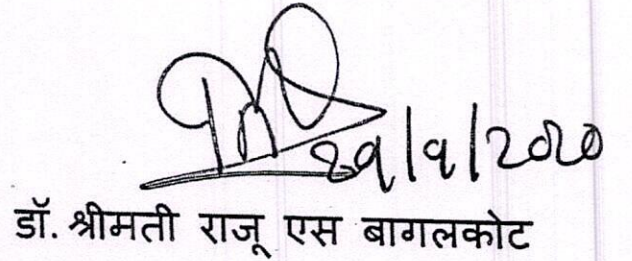 29/9/2020
डॉ. श्रीमती राजू एस बागलकोट